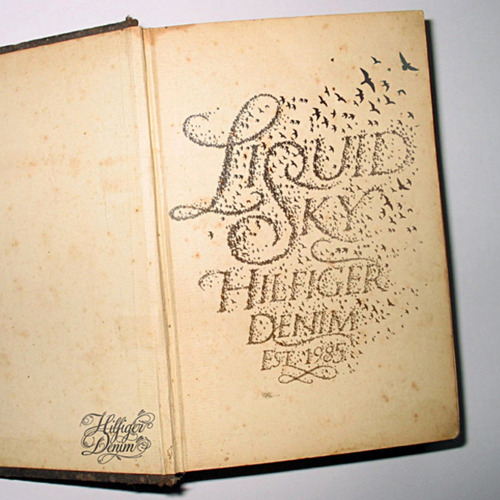 Liquid
Sky
Hilfiger
Denim
Est. 1985
Hilfiger
Denim